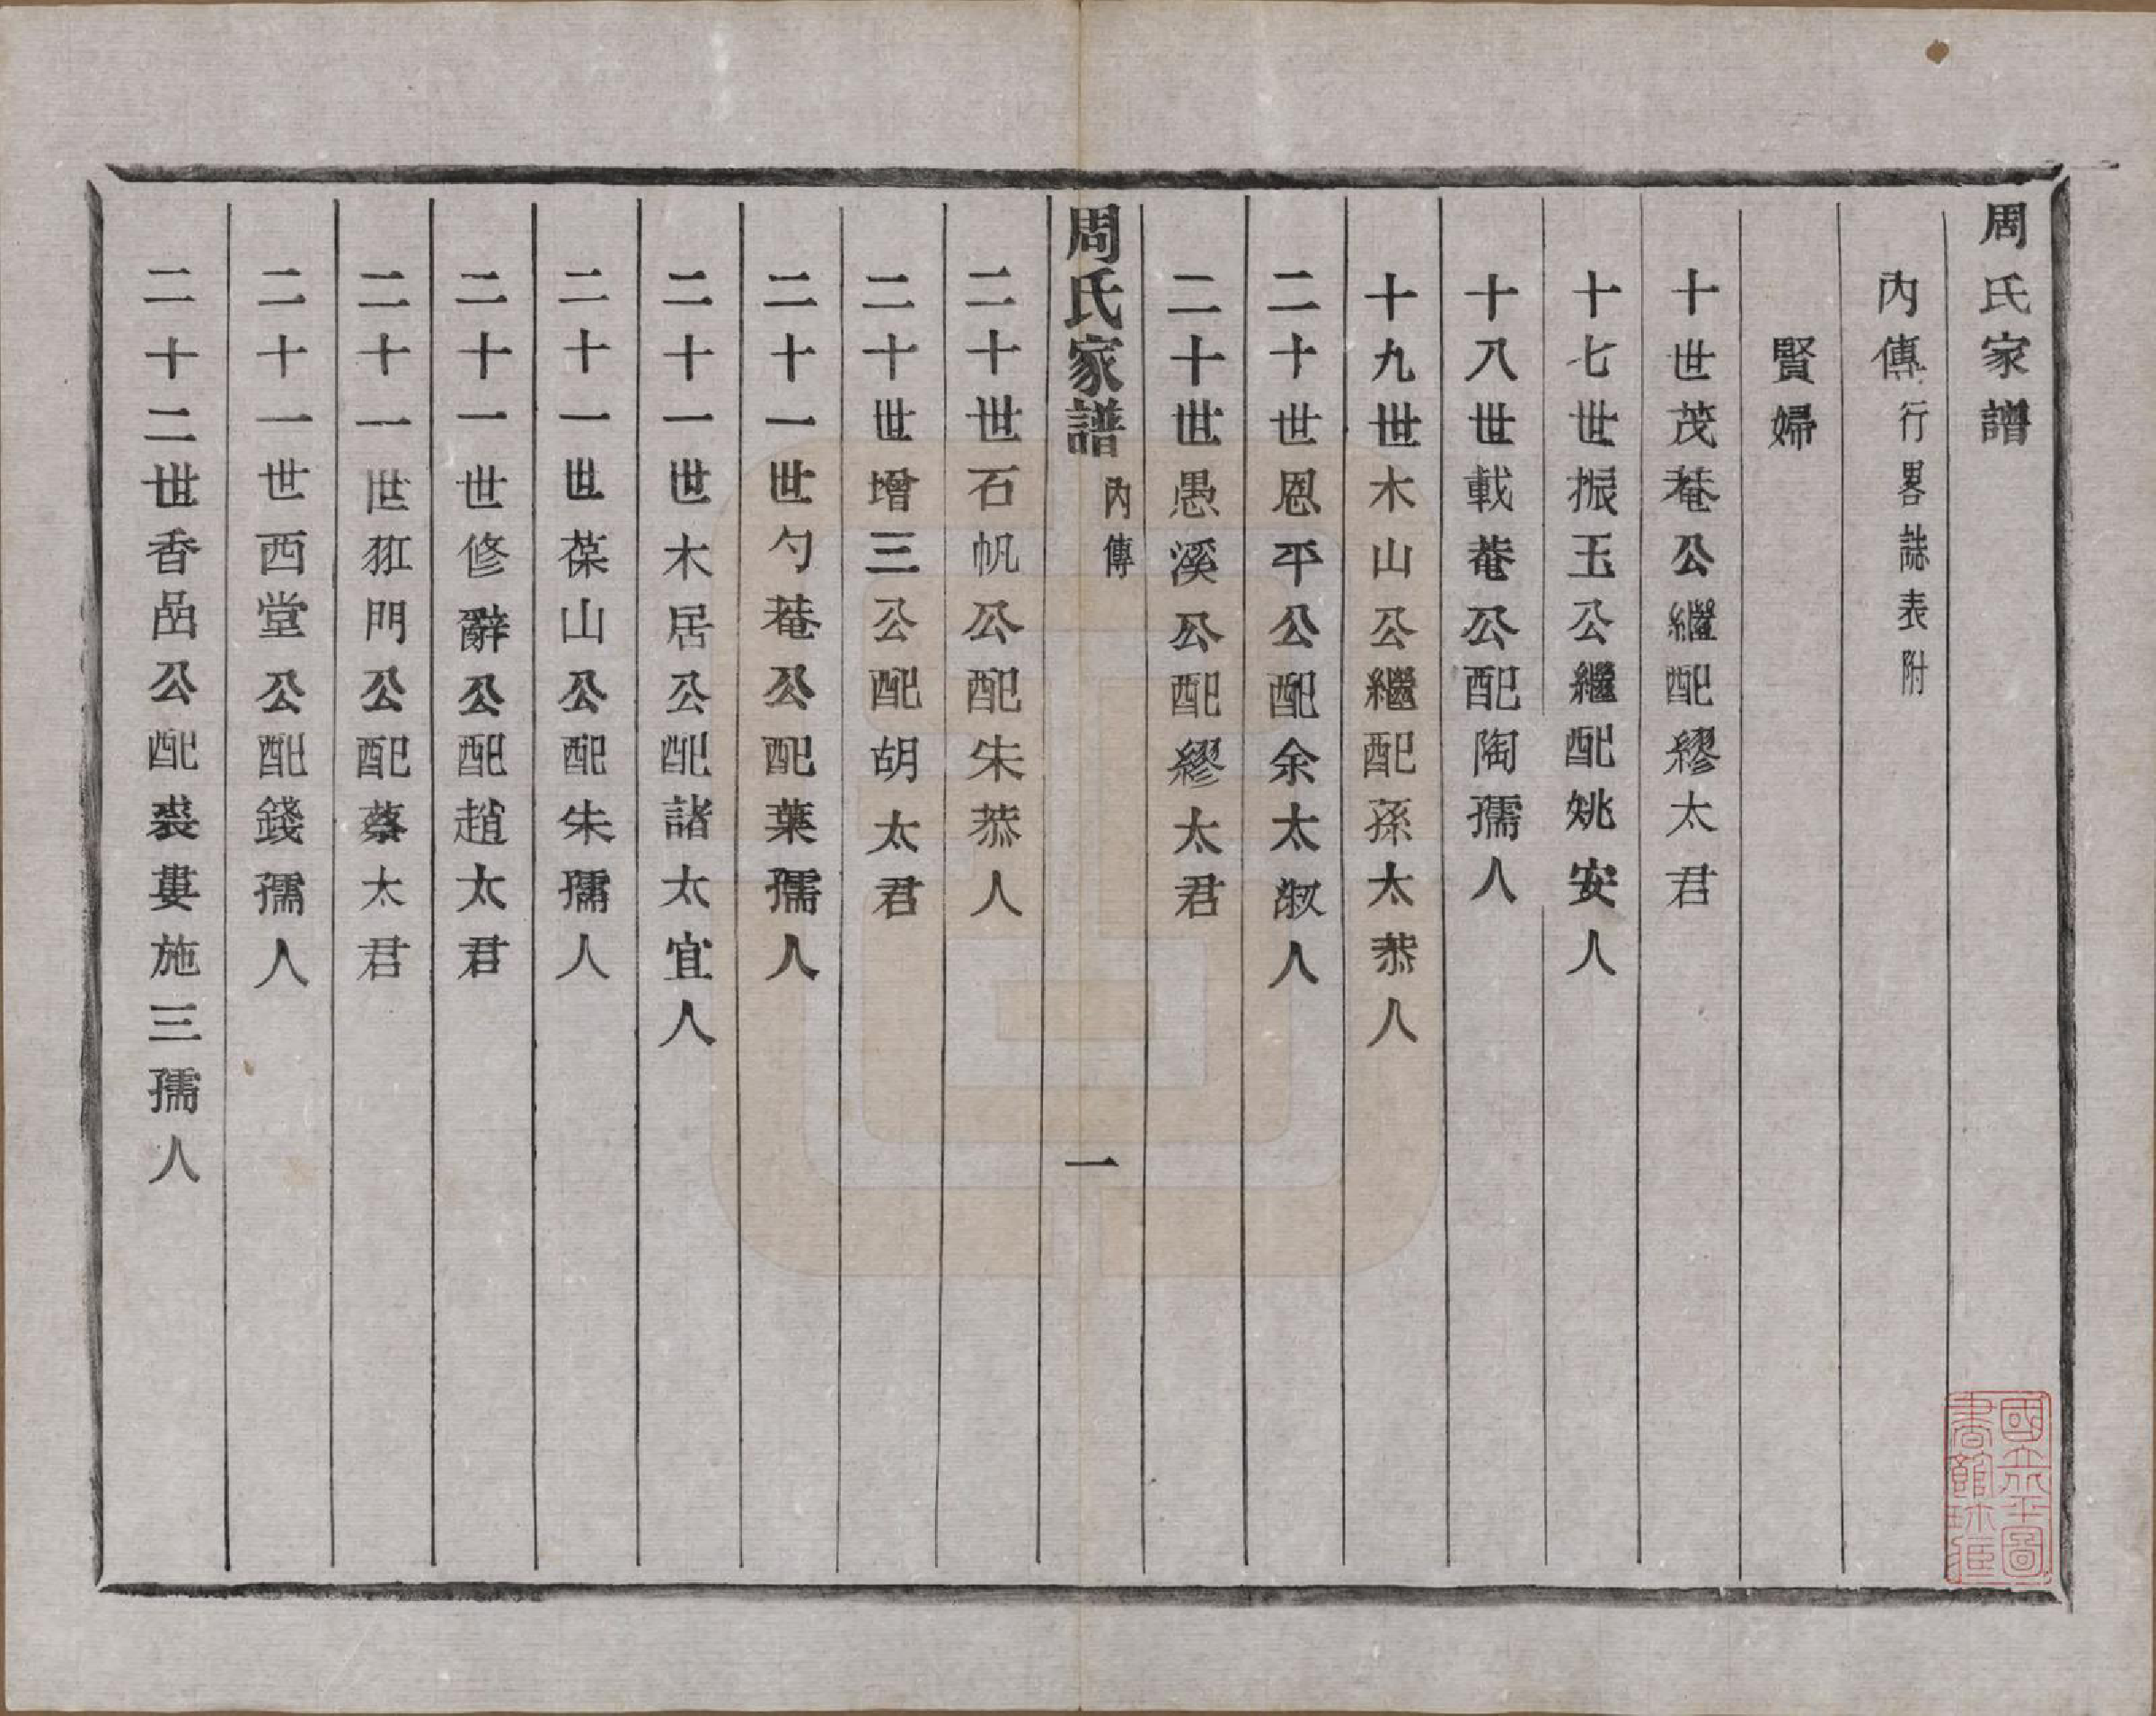 周氏家譜
內傳 行畧誌表附
賢婦
十世茂菴公繼配繆太君
十七世振玉公繼配姚安人
十八世載菴公配陶孺人
十九世木山公繼配孫太恭人
二十世恩平公配余太淑人
二十世愚溪公配繆太君
周氏家譜 內傳 一
二十世石帆公配朱恭人
二十世增三公配胡太君
二十一世勺菴公配葉孺人
二十一世木居公配諸太宜人
二十一世葆山公配朱孺人
二十一世修辭公配趙太君
二十一世豾門公配蔡太君
二十一世西堂公配錢孺人
二十二世香嵒公配裘婁施三孺人
國立北平圖書館珍藏